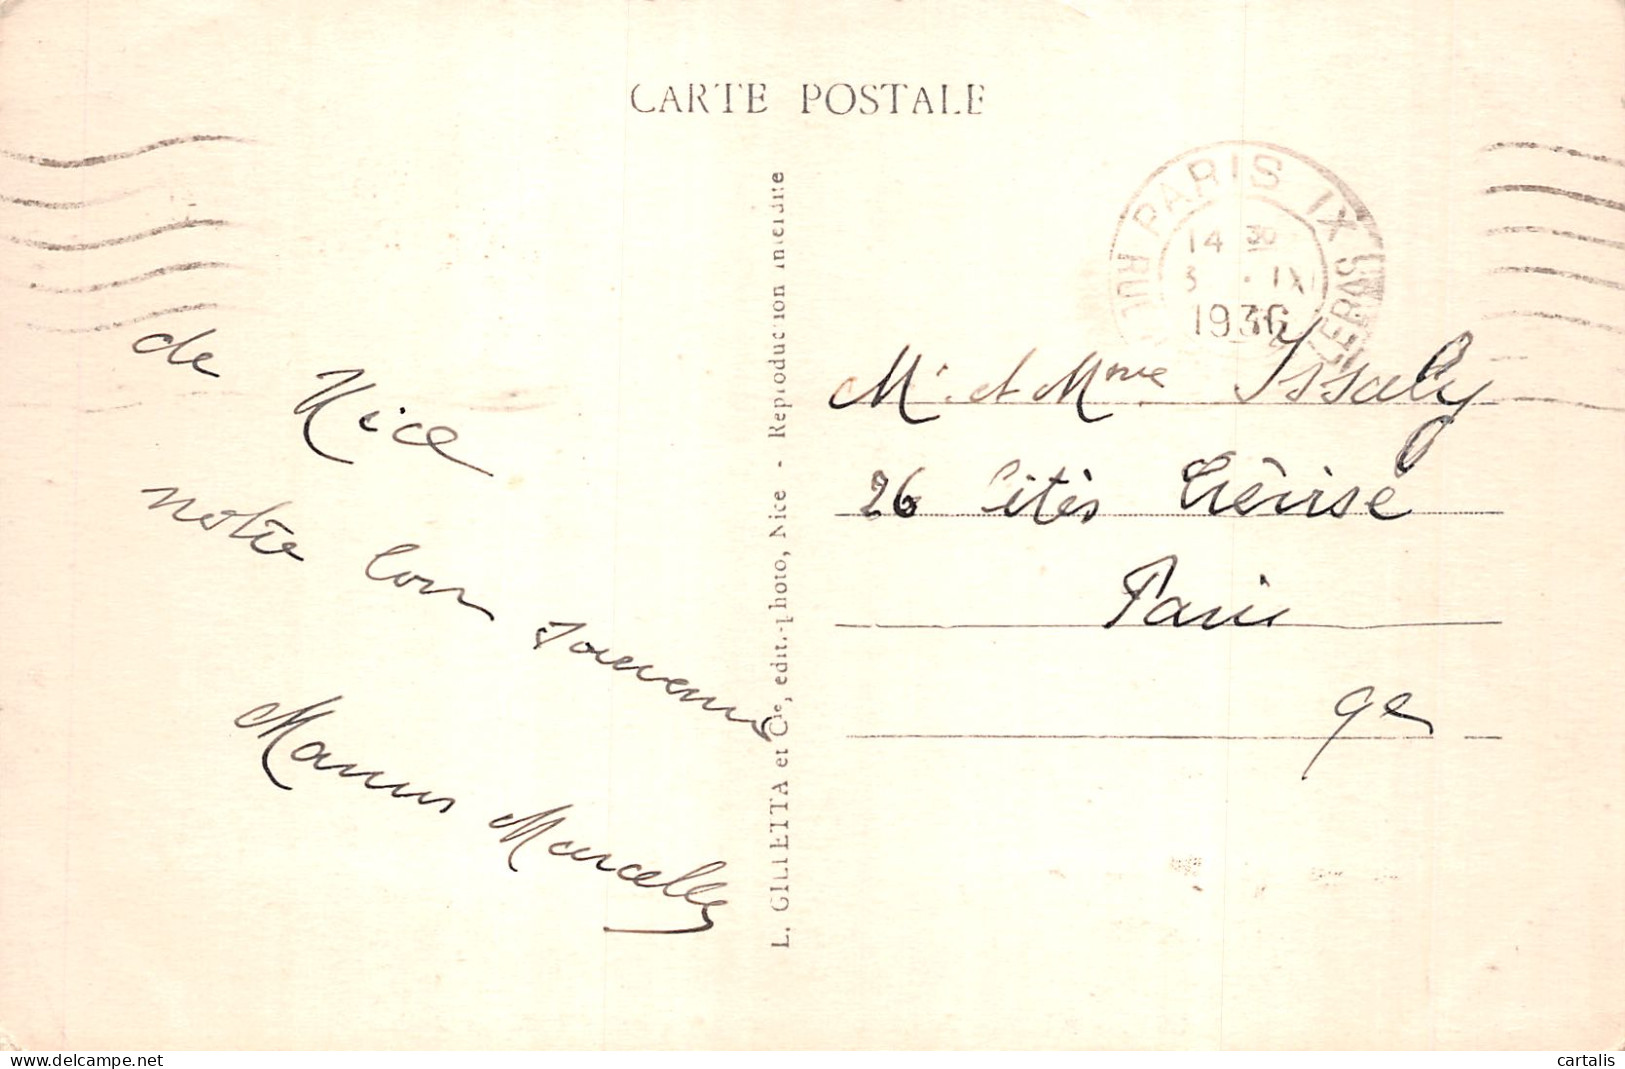 CARTE POSTALE
de Nice
notre bon souvenir
Marius Marcelle
L. GILLETTA et Cie, édit.-photo, Nice - Reproduction interdite
PARIS IX
RUE
14 30
3 · IX
1936
Mr et Mme Issaly
26 Cités Trévise
Paris
9e
cartalis
www.delcampe.net